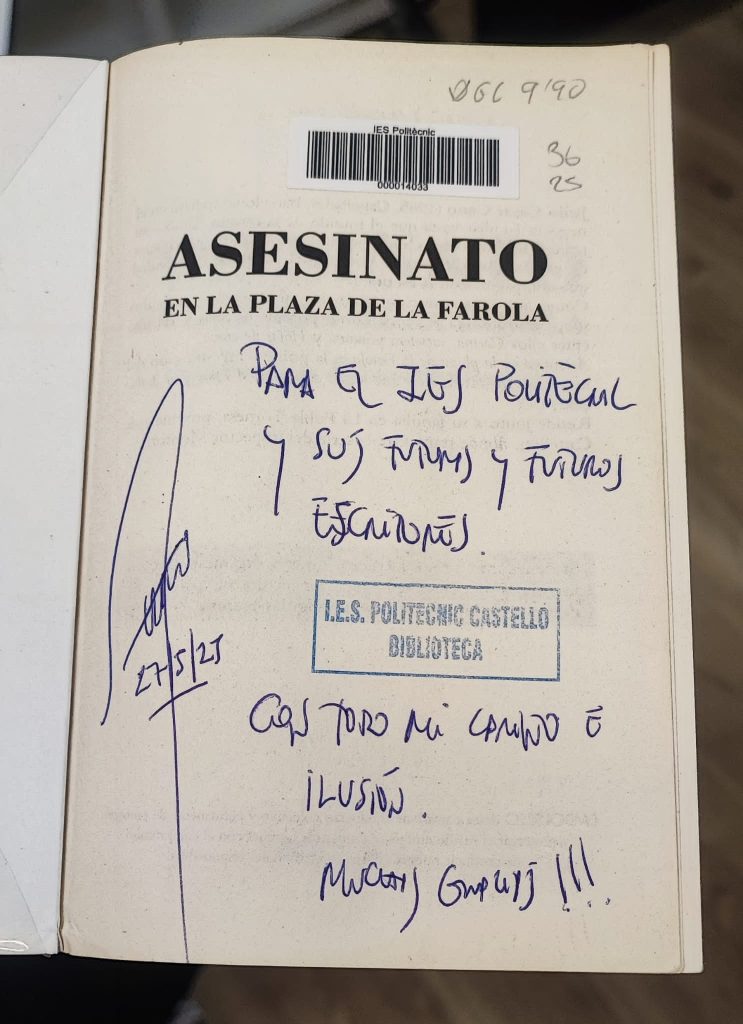 9'90
IES Politècnic
000014033
36
25
ASESINATO
EN LA PLAZA DE LA FAROLA
PARA EL IES POLITÈCNIC
Y SUS FUTURAS Y FUTUROS
ESCRITORES.
27/5/25
I.E.S. POLITECNIC CASTELLÓ
BIBLIOTECA
CON TODO MI CARIÑO E
ILUSIÓN.
MUCHAS GRACIAS!!!